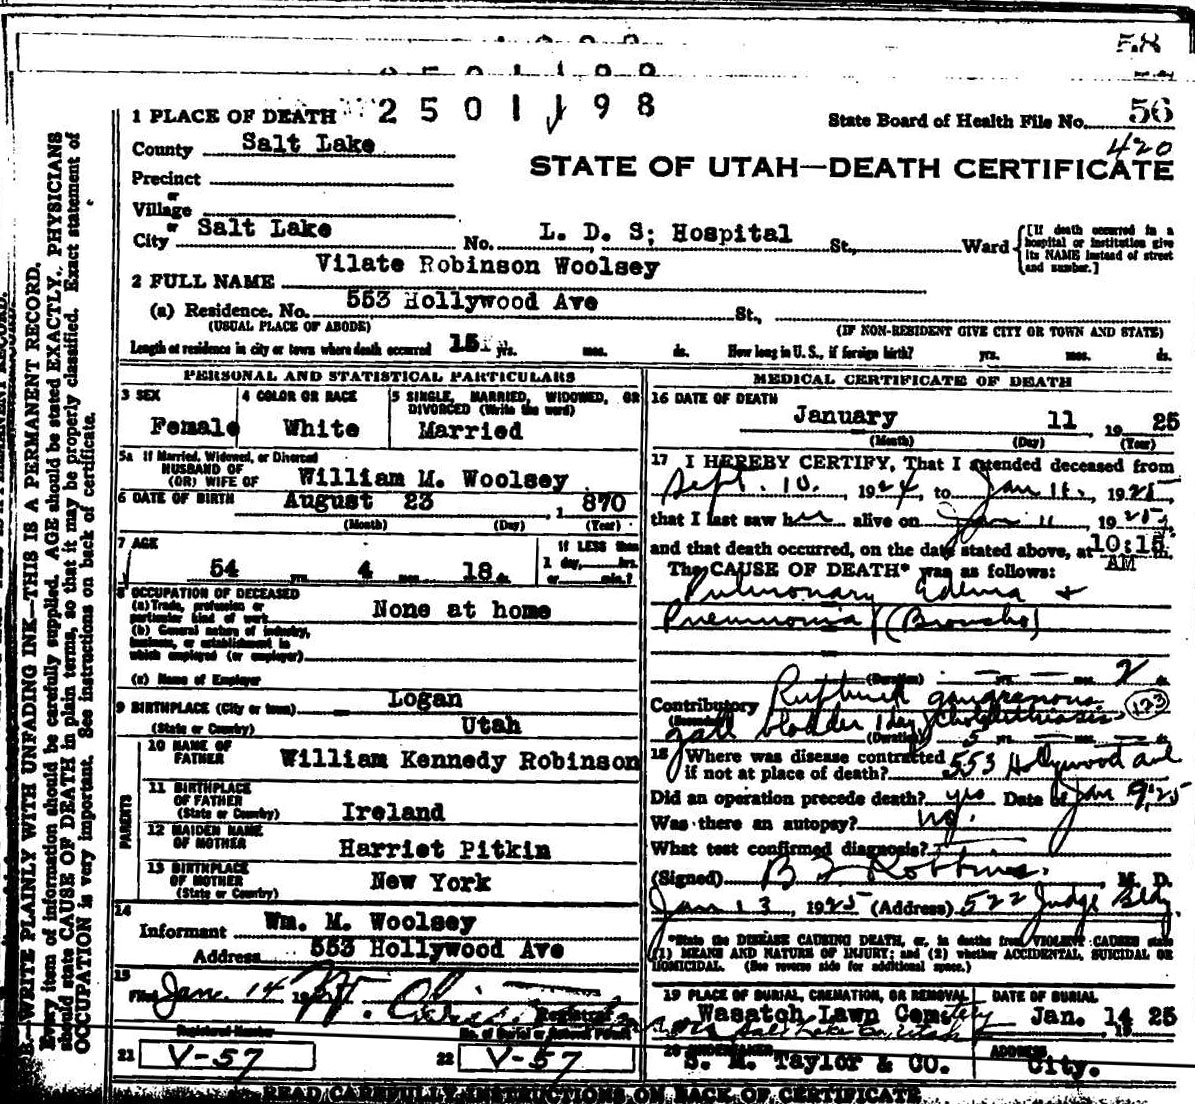 58
2501198
1 PLACE OF DEATH 2501198
State Board of Health File No. 56
420
County Salt Lake
STATE OF UTAH—DEATH CERTIFICATE
Precinct
or
Village
or
City Salt Lake No. L. D. S; Hospital St., Ward
[If death occurred in a hospital or institution give its NAME instead of street and number.]
2 FULL NAME Vilate Robinson Woolsey
(a) Residence. No. 553 Hollywood Ave St.,
(USUAL PLACE OF ABODE) (IF NON-RESIDENT GIVE CITY OR TOWN AND STATE)
Length of residence in city or town where death occurred 15 yrs. mos. ds. How long in U. S., if foreign birth? yrs. mos. ds.
PERSONAL AND STATISTICAL PARTICULARS
3 SEX Female
4 COLOR OR RACE White
5 SINGLE, MARRIED, WIDOWED, OR DIVORCED (Write the word) Married
5a If Married, Widowed, or Divorced
HUSBAND OF
(OR) WIFE OF William M. Woolsey
6 DATE OF BIRTH August 23 1870
(Month) (Day) (Year)
7 AGE 54 yrs. 4 mos. 18 ds.
If LESS than 1 day, hrs. or min.?
8 OCCUPATION OF DECEASED
(a) Trade, profession or particular kind of work None at home
(b) General nature of industry, business, or establishment in which employed (or employer)
(c) Name of Employer
9 BIRTHPLACE (City or town) Logan
(State or Country) Utah
PARENTS
10 NAME OF FATHER William Kennedy Robinson
11 BIRTHPLACE OF FATHER
(State or Country) Ireland
12 MAIDEN NAME OF MOTHER Harriet Pitkin
13 BIRTHPLACE OF MOTHER
(State or Country) New York
14
Informant Wm. M. Woolsey
Address 553 Hollywood Ave
15
Filed Jan. 14 19
Registrar
Registered Number
No. of Burial or Removal Permit
21 V-57 22 V-57
MEDICAL CERTIFICATE OF DEATH
16 DATE OF DEATH
January 11 1925
(Month) (Day) (Year)
17 I HEREBY CERTIFY, That I attended deceased from
Sept. 10, 1924, to Jan 11, 1925
that I last saw her alive on Jan 11 1925,
and that death occurred, on the date stated above, at 10:15 m.
AM
The CAUSE OF DEATH* was as follows:
Pulmonary Edema &
Pneumonia (Broncho)
(Duration) yrs. mos. 2 ds.
Contributory Ruptured gangrenous
(Secondary) gall bladder 1 day Cholelithiasis 123
(Duration) 5 yrs. mos. ds.
18 Where was disease contracted 553 Hollywood Ave
if not at place of death?
Did an operation precede death? yes Date of Jan 9, 25
Was there an autopsy? no.
What test confirmed diagnosis?
(Signed) Robbins. M. D.
Jan 13, 1925 (Address) 522 Judge Bldg.
*State the DISEASE CAUSING DEATH, or, in deaths from VIOLENT CAUSES state
(1) MEANS AND NATURE OF INJURY; and (2) whether ACCIDENTAL, SUICIDAL OR
HOMICIDAL. (See reverse side for additional space.)
19 PLACE OF BURIAL, CREMATION, OR REMOVAL
Wasatch Lawn Cemetery
Salt Lake Co, Utah
DATE OF BURIAL
Jan. 14 25
20 UNDERTAKER
S. M. Taylor & CO.
ADDRESS
City.
READ CAREFULLY INSTRUCTIONS ON BACK OF CERTIFICATE
WRITE PLAINLY WITH UNFADING INK—THIS IS A PERMANENT RECORD.
Every item of information should be carefully supplied. AGE should be stated EXACTLY. PHYSICIANS
should state CAUSE OF DEATH in plain terms, so that it may be properly classified. Exact statement of
OCCUPATION is very important. See instructions on back of certificate.